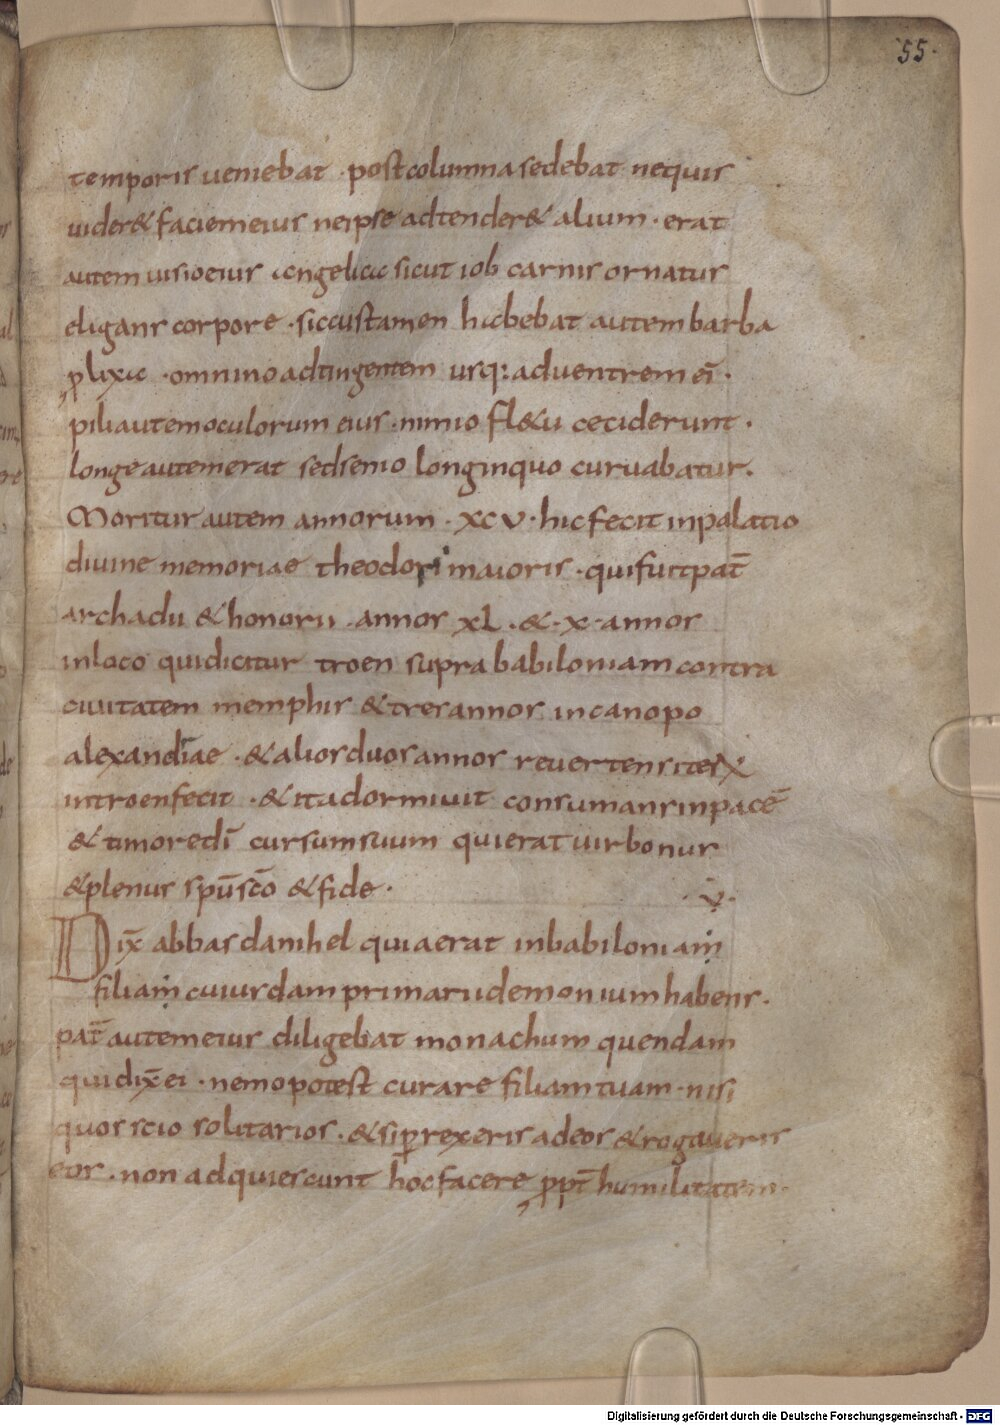 55.
temporis veniebat · post columna sedebat nequis
uider& faciem eius neipse adtender& alium · erat
autem uisio eius angelica sicut iob carnis ornatus
eligans corpore · siccus tamen hicbebat autem barba
plixa · omnino adtingentem usq: aduentrem ei ·
pili autem oculorum eius · nimio fl&u ceciderunt ·
longe autem erat sed senio longinquo curuabatur.
Moritur autem annorum · xcv · hic fecit inpalatio
diuine memoriae theodori maioris · qui fuit pat̄
archadii & honorii · annos xl · & · x · annos
inloco qui dicitur troen supra babiloniam contra
ciuitatem memphis & tres annos in canopo
alexandriae · & alios duos annos reuertens iter
introen fecit · & ita dormiuit consumans in pacē
& timore dī cursum suum quierat uir bonus
& plenus spū scō & fide ·
· v ·
Dix̄ abbas danihel quia erat in babiloniam
filiam cuiusdam primarii demonium habens ·
pat̄ autem eius diligebat monachum quendam
qui dix̄ ei · nemo potest curare filiam tuam · nisi
quos scio solitarios · & si prexeris ad eos & rogaueris
eos · non adquiescunt hoc facere ppt̄ humilitatem ·
Digitalisierung gefördert durch die Deutsche Forschungsgemeinschaft - DFG